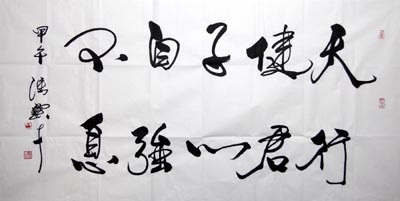 天行
健君
子以
自強
不息
甲午